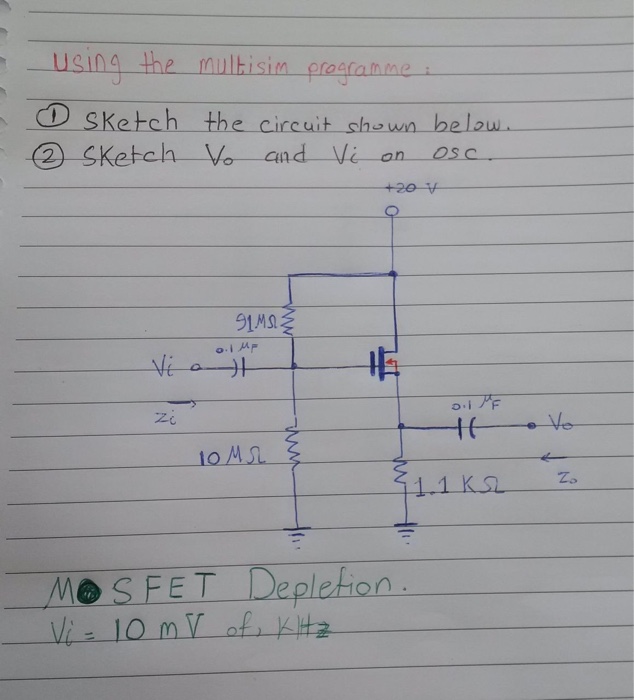 Using the multisim programme :
① Sketch the circuit shown below.
② Sketch Vo and Vi on osc.
+20 V
91MΩ
0.1 MF
Vi
Zi
0.1 MF
Vo
10 MΩ
1.1 KΩ
Zo
MOSFET Depletion.
Vi = 10 mV of, KHz